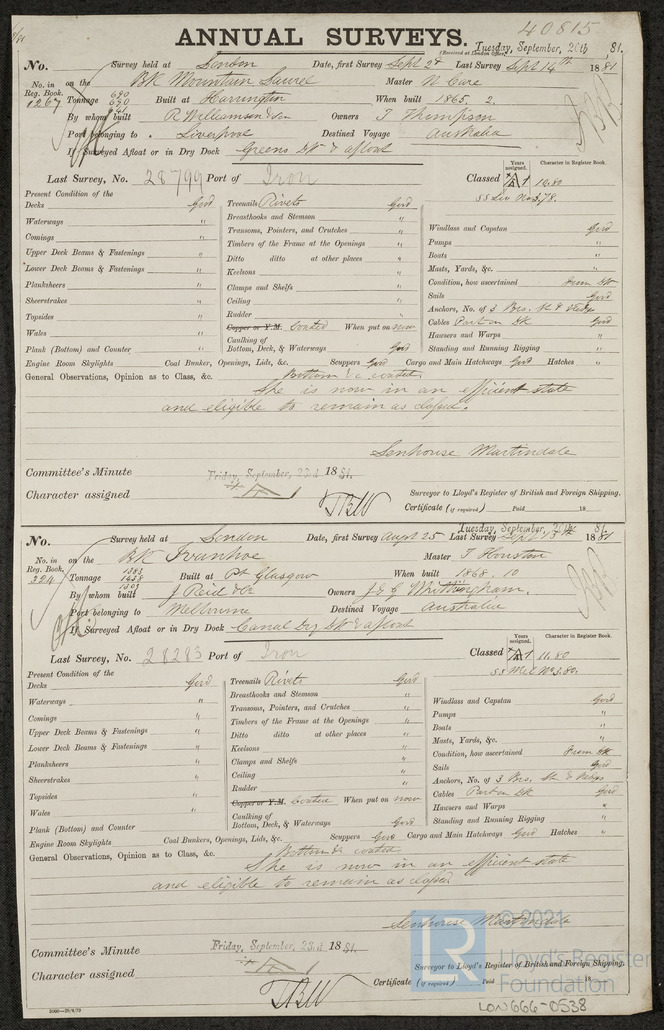 40815
ANNUAL SURVEYS.
(Received at London Office, Tuesday, September, 20th 81.
No. Survey held at London Date, first Survey Sept 2d Last Survey Sept 14th 1881
No. in Reg. Book. 1267 on the Bk Mountain Laurel Master N Care
Tonnage 690 690 641 Built at Harrington When built 1865. 2.
By whom built R Williamson & Son Owners T Thompson
Port belonging to Liverpool Destined Voyage Australia
If Surveyed Afloat or in Dry Dock Greens Dk & afloat
Last Survey, No. 28799 Port of Iron Classed Years assigned. A1 Character in Register Book. 10.80
SS Liv No3.78.
Present Condition of the
Decks Good Treenails Rivets Good
Waterways " Breasthooks and Stemson " Windlass and Capstan Good
Comings " Transoms, Pointers, and Crutches " Pumps "
Upper Deck Beams & Fastenings " Timbers of the Frame at the Openings " Boats "
Lower Deck Beams & Fastenings " Ditto ditto at other places " Masts, Yards, &c. "
Planksheers " Keelsons " Condition, how ascertained From Dk
Sheerstrakes " Clamps and Shelfs " Sails Good
Topsides " Ceiling " Anchors, No. of 3 Brs. St & Kedges
Wales " Rudder " Cables Part on Dk Good
Plank (Bottom) and Counter " Copper or Y.M. Coated When put on now Hawsers and Warps "
Caulking of Bottom, Deck, & Waterways Good Standing and Running Rigging "
Engine Room Skylights Coal Bunker, Openings, Lids, &c. Scuppers Good Cargo and Main Hatchways Good Hatches "
General Observations, Opinion as to Class, &c. Bottom &c coated.
She is now in an efficient state
and eligible to remain as classed.
Senhouse Martindale
Committee's Minute Friday, September, 23rd 1881.
Character assigned A1 Surveyor to Lloyd's Register of British and Foreign Shipping.
TBW Certificate (if required) Paid 18
Tuesday, September, 20th 81.
No. Survey held at London Date, first Survey Augst 25 Last Survey Sept 13th 1881
No. in Reg. Book. 394 on the Bk Ivanhoe Master T Houston
Tonnage 1383 1438 1309 Built at Pt Glasgow When built 1868. 10
By whom built J Reid & Co Owners J & G Whittingham.
Port belonging to Melbourne Destined Voyage Australia
If Surveyed Afloat or in Dry Dock Canal Dry Dk & afloat
Last Survey, No. 28283 Port of Iron Classed Years assigned. A1 Character in Register Book. 11.80
SS Mel No3.80.
Present Condition of the
Decks Good Treenails Rivets Good
Waterways " Breasthooks and Stemson " Windlass and Capstan Good
Comings " Transoms, Pointers, and Crutches " Pumps "
Upper Deck Beams & Fastenings " Timbers of the Frame at the Openings " Boats "
Lower Deck Beams & Fastenings " Ditto ditto at other places " Masts, Yards, &c. "
Planksheers " Keelsons " Condition, how ascertained From Dk
Sheerstrakes " Clamps and Shelfs " Sails Good
Topsides " Ceiling " Anchors, No. of 3 Brs. St & Kedges
Wales " Rudder " Cables Part on Dk Good
Plank (Bottom) and Counter " Copper or Y.M. Coated When put on now Hawsers and Warps "
Caulking of Bottom, Deck, & Waterways Good Standing and Running Rigging "
Engine Room Skylights Coal Bunkers, Openings, Lids, &c. Scuppers Good Cargo and Main Hatchways Good Hatches "
General Observations, Opinion as to Class, &c. Bottom &c coated
She is now in an efficient state
and eligible to remain as classed
Senhouse Martindale
Committee's Minute Friday, September, 23rd 1881.
Character assigned A1 Surveyor to Lloyd's Register of British and Foreign Shipping.
TBW Certificate (if required) Paid 18
© 2021
LR Lloyd's Register
Foundation
LON666-0538